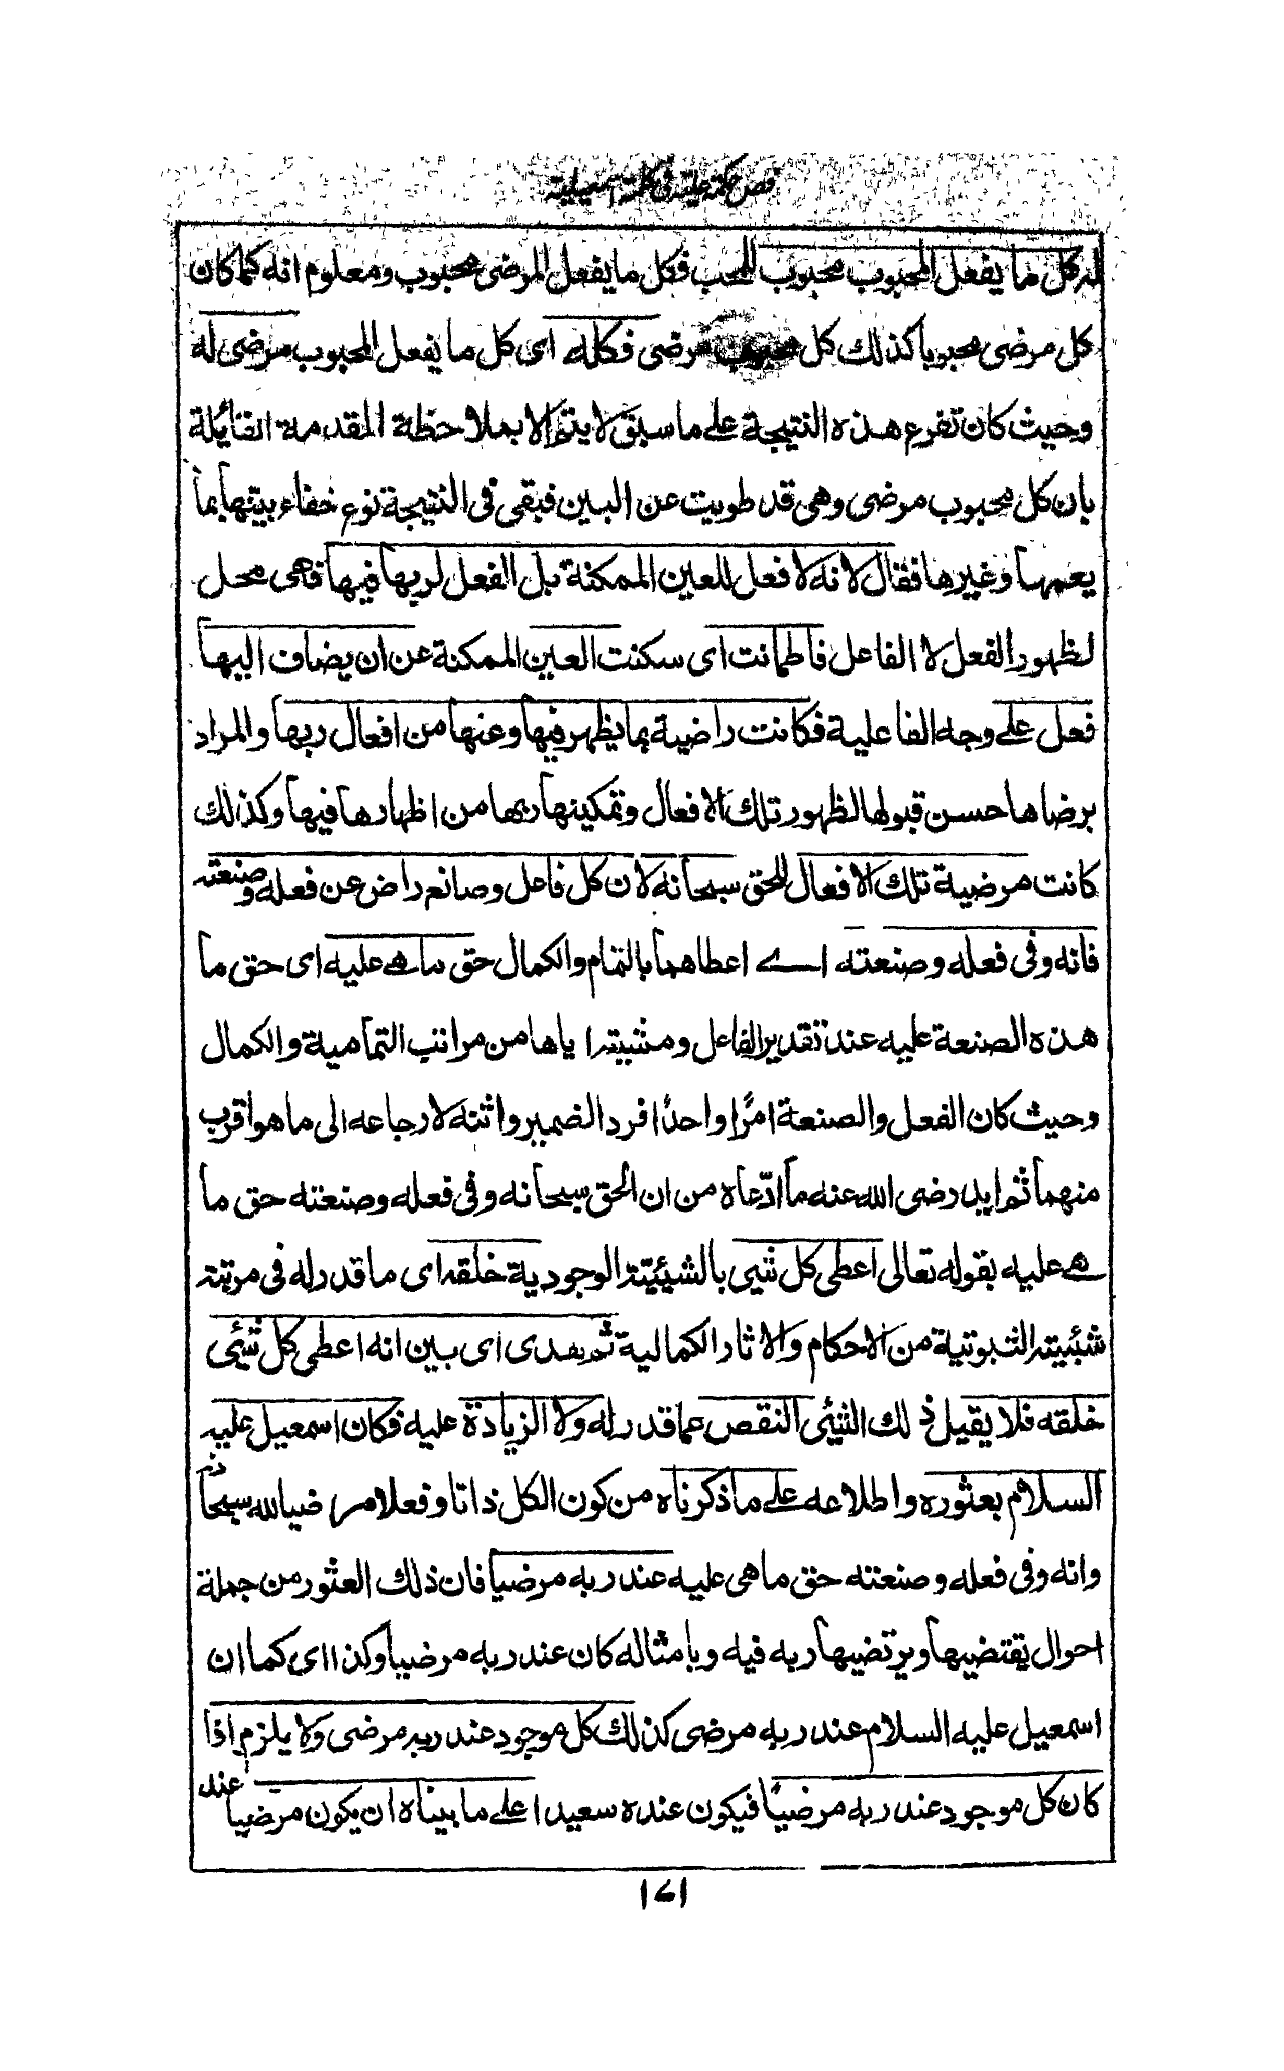 فص حكمة علية فى كلمة اسمعيلية
له كل ما يفعل المحبوب محبوب للمحب فكل ما يفعل المرضى محبوب ومعلوم انه كما كان
كل مرضى محبوبا كذلك كل محبوب مرضى فكله اى كل ما يفعل المحبوب مرضى له
وحيث كان تفرع هذه النتيجة على ما سبق لا يتم الا بملاحظة المقدمة القائلة
بان كل محبوب مرضى وهى قد طويت عن البين فبقى فى النتيجة نوع خفاء بينها بما
يعمها وغيرها فقال لانه لا فعل للعين الممكنة بل الفعل لربها فيها فهى محل
لظهور الفعل لا الفاعل فاطمانت اى سكنت العين الممكنة عن ان يضاف اليها
فعل على وجه الفاعلية فكانت راضية بما يظهر فيها وعنها من افعال ربها والمراد
برضاها حسن قبولها لظهور تلك الافعال وتمكينها ربها من اظهارها فيها وكذلك
كانت مرضية تلك الافعال للحق سبحانه لان كل فاعل وصانع راض عن فعله وصنعته
فانه وفى فعله وصنعته اے اعطاهما بالتمام والكمال حق ما هے عليه اى حق ما
هذه الصنعة عليه عند تقدير الفاعل ومشيته اياها من مراتب التمامية والكمال
وحيث كان الفعل والصنعة امرًا واحدًا افرد الضمير وانثه لارجاعه الى ما هو اقرب
منهما ثم ايد رضى الله عنه ما ادّعاه من ان الحق سبحانه وفى فعله وصنعته حق ما
هے عليه بقوله تعالى اعطى كل شيى بالشيئيته الوجودية خلقه اى ما قدر له فى مرتبة
شيئيته الثبوتية من الاحكام والاثار الكمالية ثم هدى اى بين انه اعطى كل شيئى
خلقه فلا يقبل ذلك الشيئى النقص عما قدر له ولا الزيادة عليه فكان اسمعيل عليه
السلام بعثوره واطلاعه على ما ذكرناه من كون الكل ذاتا وفعلا مرضيا لله سبحانه
وانه وفى فعله وصنعته حق ما هى عليه عند ربه مرضيا فان ذلك العثور من جملة
احوال يقتضيها ويرتضيها ربه فيه وبامثاله كان عند ربه مرضيا وكذا اى كما ان
اسمعيل عليه السلام عند ربه مرضى كذلك كل موجود عند ربه مرضى ولا يلزم اذا
كان كل موجود عند ربه مرضيًا فيكون عنده سعيدا على ما بيناه ان يكون مرضيا عند
١٧١